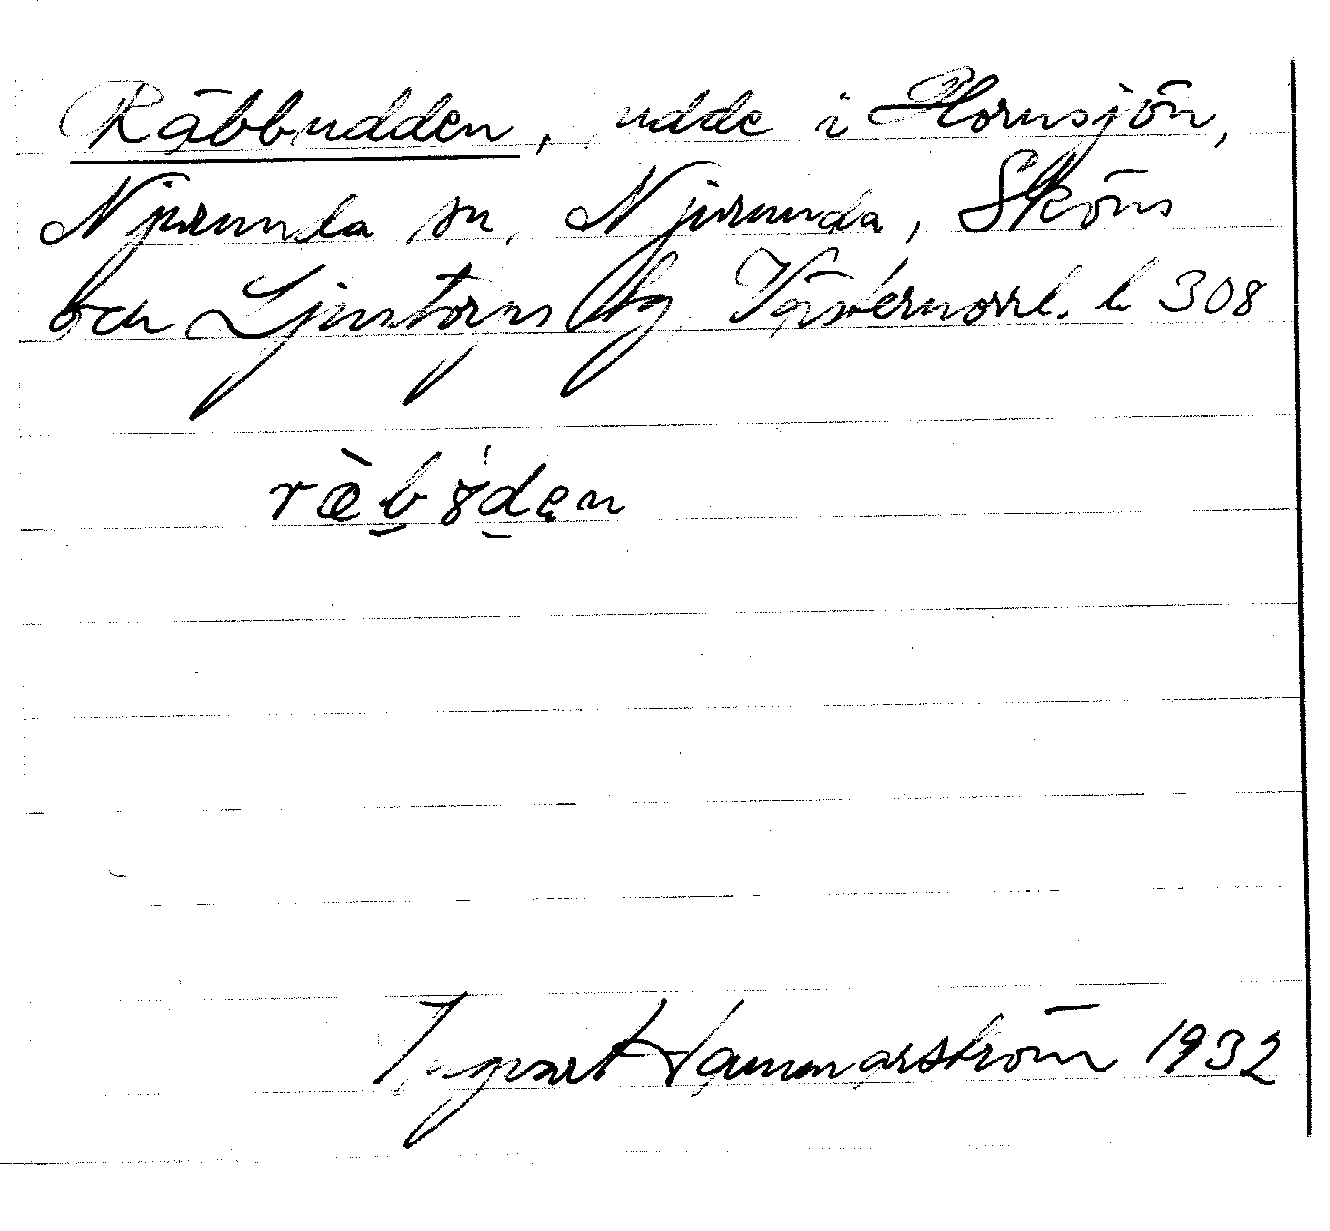 Räbbudden, udde i Hornsjön,
Njurunda sn, Njurunda, Sköns
och Ljustorps tg Västernorrl. l 308
ræ̀b8̍den
Ingvart Hammarström 1932